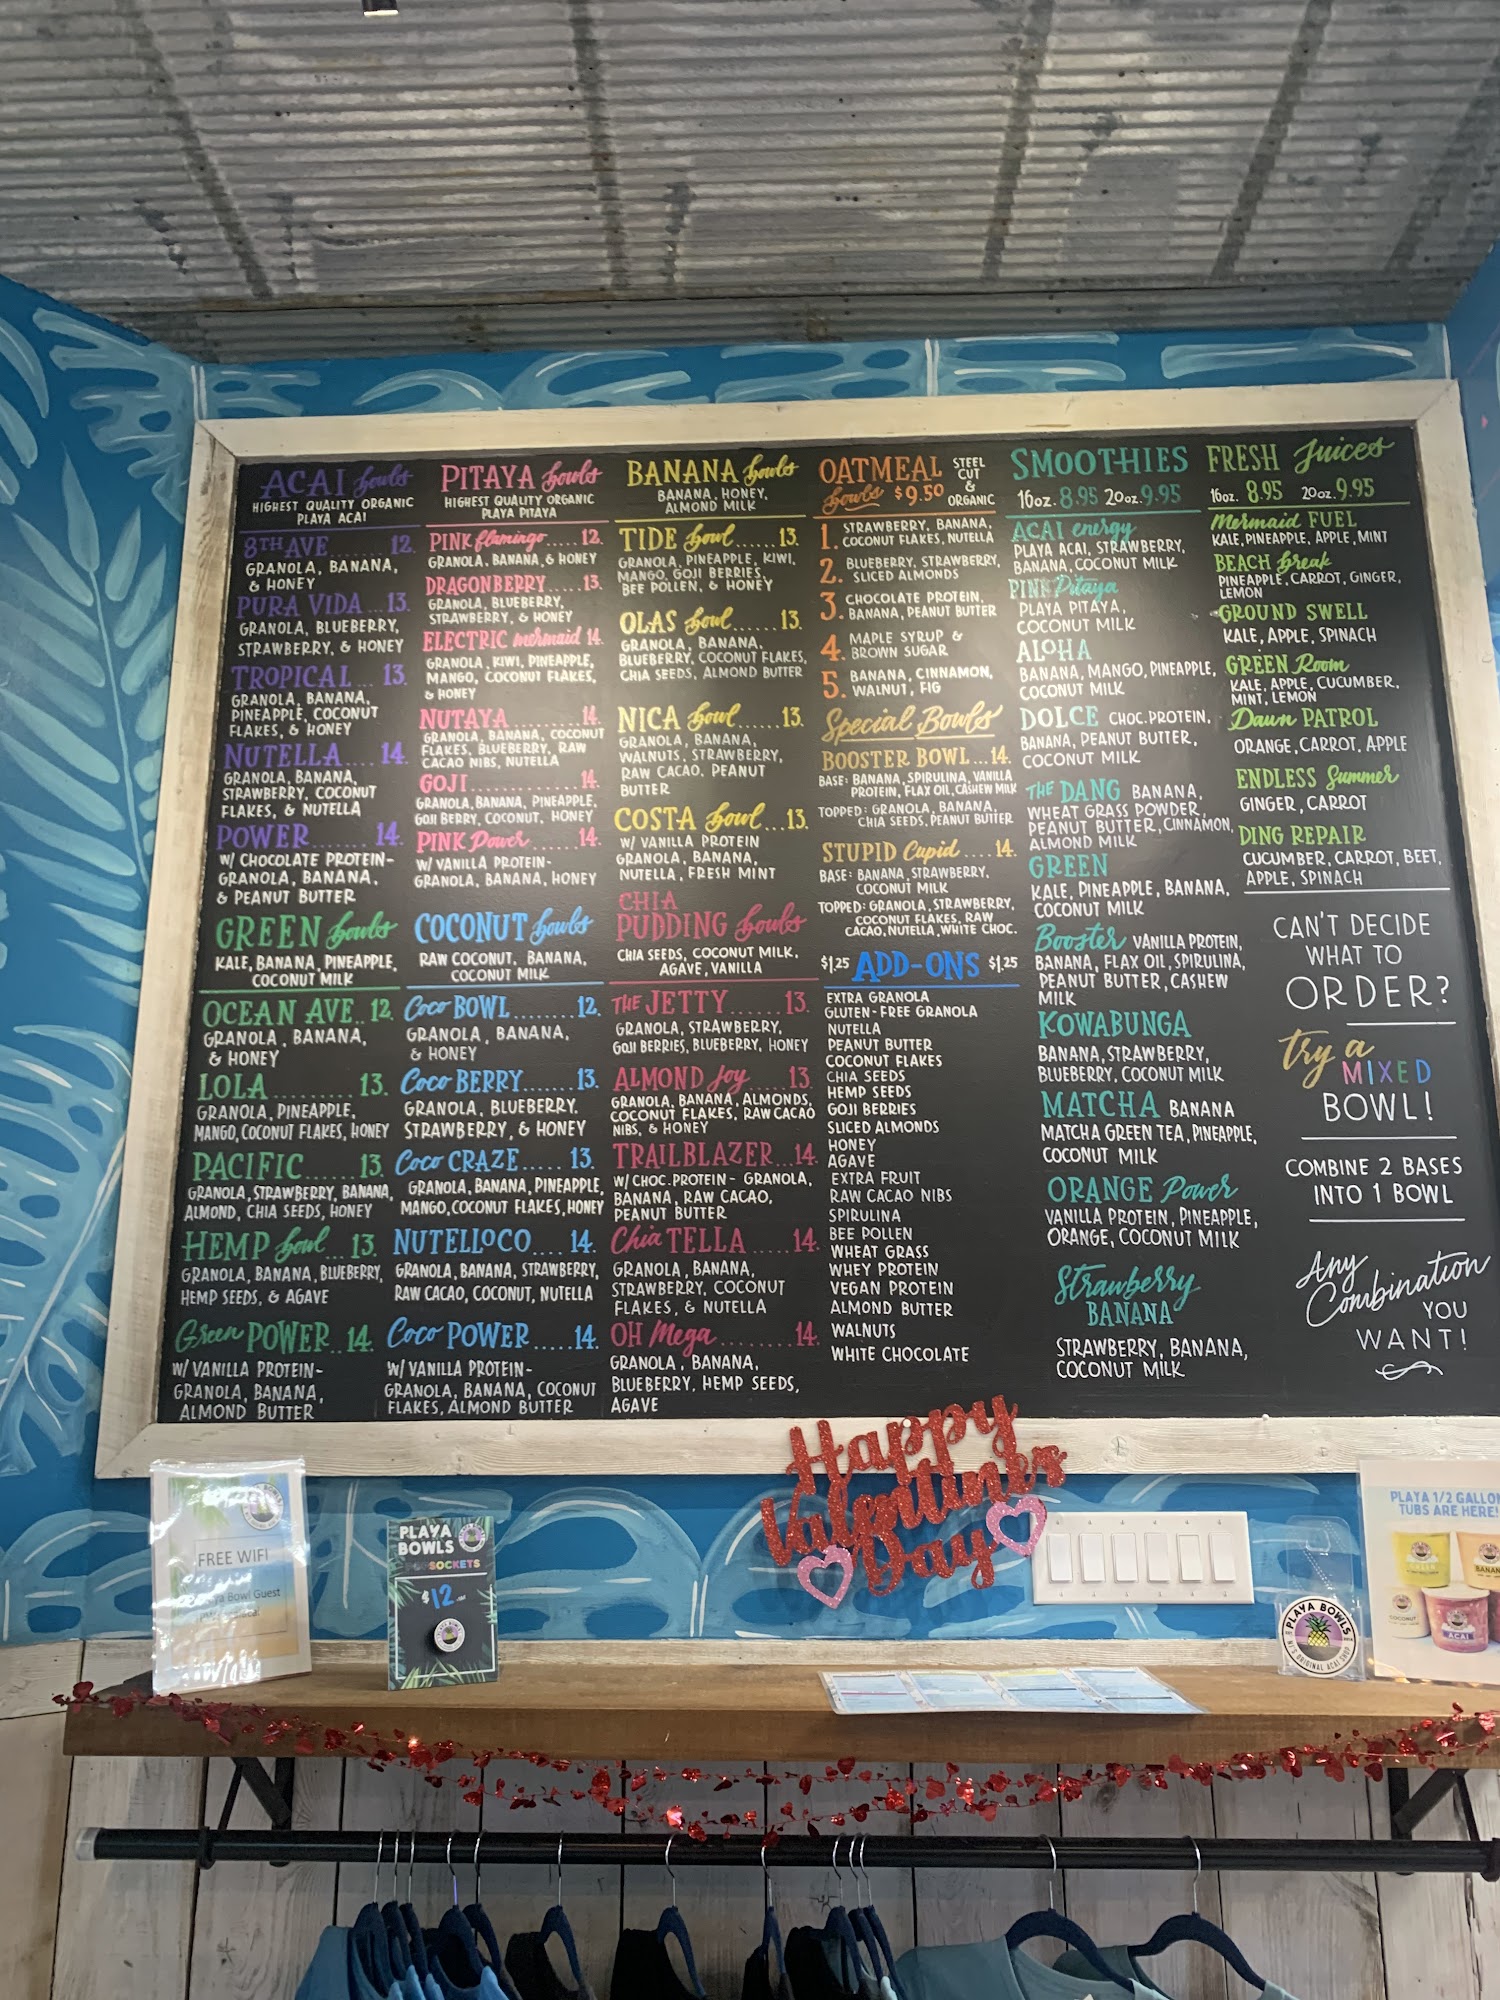 ACAI bowls
HIGHEST QUALITY ORGANIC
PLAYA ACAI
8TH AVE....... 12.
GRANOLA, BANANA,
& HONEY
PURA VIDA ...13.
GRANOLA, BLUEBERRY,
STRAWBERRY, & HONEY
TROPICAL... 13.
GRANOLA, BANANA,
PINEAPPLE, COCONUT
FLAKES, & HONEY
NUTELLA..... 14.
GRANOLA, BANANA,
STRAWBERRY, COCONUT
FLAKES, & NUTELLA
POWER....... 14.
W/ CHOCOLATE PROTEIN-
GRANOLA, BANANA,
& PEANUT BUTTER
GREEN bowls
KALE, BANANA, PINEAPPLE,
COCONUT MILK
OCEAN AVE.. 12.
GRANOLA, BANANA,
& HONEY
LOLA......... 13.
GRANOLA, PINEAPPLE,
MANGO, COCONUT FLAKES, HONEY
PACIFIC...... 13.
GRANOLA, STRAWBERRY, BANANA,
ALMOND, CHIA SEEDS, HONEY
HEMP bowl... 13.
GRANOLA, BANANA, BLUEBERRY,
HEMP SEEDS, & AGAVE
Green POWER.. 14.
W/ VANILLA PROTEIN-
GRANOLA, BANANA,
ALMOND BUTTER
PITAYA bowls
HIGHEST QUALITY ORGANIC
PLAYA PITAYA
PINK flamingo..... 12.
GRANOLA, BANANA, & HONEY
DRAGONBERRY.... 13.
GRANOLA, BLUEBERRY,
STRAWBERRY, & HONEY
ELECTRIC mermaid 14.
GRANOLA, KIWI, PINEAPPLE,
MANGO, COCONUT FLAKES,
& HONEY
NUTAYA........ 14.
GRANOLA, BANANA, COCONUT
FLAKES, BLUEBERRY, RAW
CACAO NIBS, NUTELLA
GOJI............ 14.
GRANOLA, BANANA, PINEAPPLE,
GOJI BERRY, COCONUT, HONEY
PINK Power...... 14.
W/ VANILLA PROTEIN-
GRANOLA, BANANA, HONEY
COCONUT bowls
RAW COCONUT, BANANA,
COCONUT MILK
Coco BOWL........12.
GRANOLA, BANANA,
& HONEY
Coco BERRY.......13.
GRANOLA, BLUEBERRY,
STRAWBERRY, & HONEY
Coco CRAZE..... 13.
GRANOLA, BANANA, PINEAPPLE,
MANGO, COCONUT FLAKES, HONEY
NUTELLOCO.... 14.
GRANOLA, BANANA, STRAWBERRY,
RAW CACAO, COCONUT, NUTELLA
Coco POWER.....14.
W/ VANILLA PROTEIN-
GRANOLA, BANANA, COCONUT
FLAKES, ALMOND BUTTER
BANANA bowls
BANANA, HONEY,
ALMOND MILK
TIDE bowl...... 13.
GRANOLA, PINEAPPLE, KIWI,
MANGO, GOJI BERRIES,
BEE POLLEN, & HONEY
OLAS bowl....... 13.
GRANOLA, BANANA,
BLUEBERRY, COCONUT FLAKES,
CHIA SEEDS, ALMOND BUTTER
NICA bowl......13.
GRANOLA, BANANA,
WALNUTS, STRAWBERRY,
RAW CACAO, PEANUT
BUTTER
COSTA bowl...13.
W/ VANILLA PROTEIN
GRANOLA, BANANA,
NUTELLA, FRESH MINT
CHIA
PUDDING bowls
CHIA SEEDS, COCONUT MILK,
AGAVE, VANILLA
THE JETTY...... 13.
GRANOLA, STRAWBERRY,
GOJI BERRIES, BLUEBERRY, HONEY
ALMOND Joy.... 13.
GRANOLA, BANANA, ALMONDS,
COCONUT FLAKES, RAW CACAO
NIBS, & HONEY
TRAILBLAZER...14.
W/ CHOC. PROTEIN- GRANOLA,
BANANA, RAW CACAO,
PEANUT BUTTER
Chia TELLA ..... 14.
GRANOLA, BANANA,
STRAWBERRY, COCONUT
FLAKES, & NUTELLA
OH Mega........ 14.
GRANOLA, BANANA,
BLUEBERRY, HEMP SEEDS,
AGAVE
OATMEAL
bowls $9.50
STEEL
CUT
&
ORGANIC
1. STRAWBERRY, BANANA,
COCONUT FLAKES, NUTELLA
2. BLUEBERRY, STRAWBERRY,
SLICED ALMONDS
3. CHOCOLATE PROTEIN,
BANANA, PEANUT BUTTER
4. MAPLE SYRUP &
BROWN SUGAR
5. BANANA, CINNAMON,
WALNUT, FIG
Special Bowls
BOOSTER BOWL...14.
BASE: BANANA, SPIRULINA, VANILLA
PROTEIN, FLAX OIL, CASHEW MILK
TOPPED: GRANOLA, BANANA,
CHIA SEEDS, PEANUT BUTTER
STUPID Cupid .... 14.
BASE: BANANA, STRAWBERRY,
COCONUT MILK
TOPPED: GRANOLA, STRAWBERRY,
COCONUT FLAKES, RAW
CACAO, NUTELLA, WHITE CHOC.
$1.25 ADD-ONS $1.25
EXTRA GRANOLA
GLUTEN-FREE GRANOLA
NUTELLA
PEANUT BUTTER
COCONUT FLAKES
CHIA SEEDS
HEMP SEEDS
GOJI BERRIES
SLICED ALMONDS
HONEY
AGAVE
EXTRA FRUIT
RAW CACAO NIBS
SPIRULINA
BEE POLLEN
WHEAT GRASS
WHEY PROTEIN
VEGAN PROTEIN
ALMOND BUTTER
WALNUTS
WHITE CHOCOLATE
SMOOTHIES
16oz. 8.95 20oz. 9.95
ACAI energy
PLAYA ACAI, STRAWBERRY,
BANANA, COCONUT MILK
PINK Pitaya
PLAYA PITAYA,
COCONUT MILK
ALOHA
BANANA, MANGO, PINEAPPLE,
COCONUT MILK
DOLCE CHOC. PROTEIN,
BANANA, PEANUT BUTTER,
COCONUT MILK
THE DANG BANANA,
WHEAT GRASS POWDER,
PEANUT BUTTER, CINNAMON,
ALMOND MILK
GREEN
KALE, PINEAPPLE, BANANA,
COCONUT MILK
Booster VANILLA PROTEIN,
BANANA, FLAX OIL, SPIRULINA,
PEANUT BUTTER, CASHEW
MILK
KOWABUNGA
BANANA, STRAWBERRY,
BLUEBERRY, COCONUT MILK
MATCHA BANANA
MATCHA GREEN TEA, PINEAPPLE,
COCONUT MILK
ORANGE Power
VANILLA PROTEIN, PINEAPPLE,
ORANGE, COCONUT MILK
Strawberry
BANANA
STRAWBERRY, BANANA,
COCONUT MILK
FRESH Juices
16oz. 8.95 20oz. 9.95
Mermaid FUEL
KALE, PINEAPPLE, APPLE, MINT
BEACH break
PINEAPPLE, CARROT, GINGER,
LEMON
GROUND SWELL
KALE, APPLE, SPINACH
GREEN Room
KALE, APPLE, CUCUMBER,
MINT, LEMON
Dawn PATROL
ORANGE, CARROT, APPLE
ENDLESS Summer
GINGER, CARROT
DING REPAIR
CUCUMBER, CARROT, BEET,
APPLE, SPINACH
CAN'T DECIDE
WHAT TO
ORDER?
try a
MIXED
BOWL!
COMBINE 2 BASES
INTO 1 BOWL
Any
Combination
YOU
WANT!
Happy
Valentine's
Day
FREE WIFI
Bowl Guest
PLAYA
BOWLS
SOCKETS
$12
PLAYA BOWLS
NJ'S ORIGINAL ACAI SHOP
PLAYA 1/2 GALLON
TUBS ARE HERE!
COCONUT
ACAI